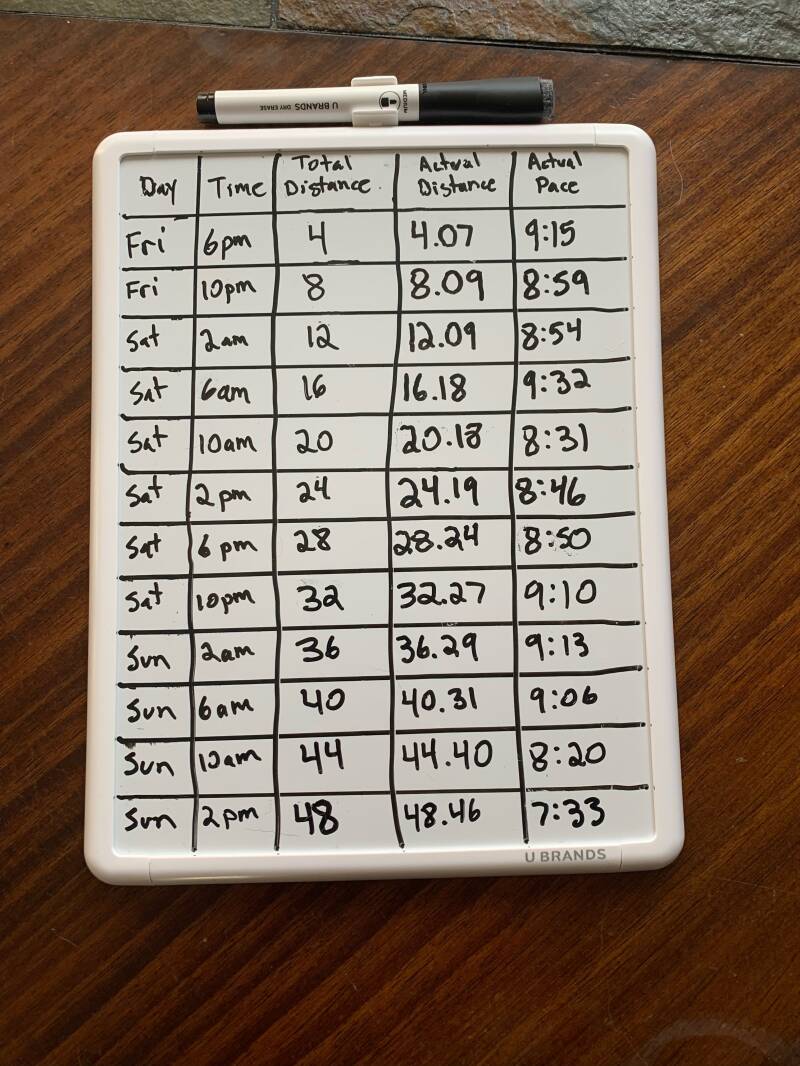 U BRANDS DRY ERASE
MEDIUM
Day Time Total Distance. Actual Distance Actual Pace
Fri 6pm 4 4.07 9:15
Fri 10pm 8 8.09 8:59
Sat 2am 12 12.09 8:54
Sat 6am 16 16.18 9:32
Sat 10am 20 20.18 8:31
Sat 2pm 24 24.19 8:46
Sat 6pm 28 28.24 8:50
Sat 10pm 32 32.27 9:10
Sun 2am 36 36.29 9:13
Sun 6am 40 40.31 9:06
Sun 10am 44 44.40 8:20
Sun 2pm 48 48.46 7:33
U BRANDS